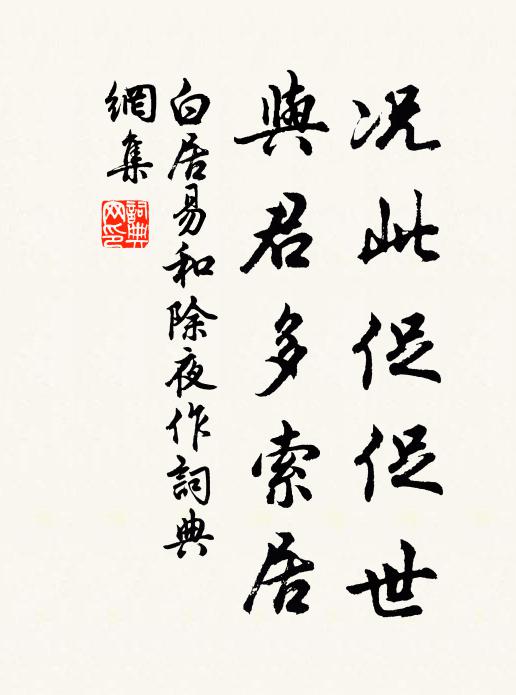 况此促促世
與君多索居
白居易和除夜作詞典
網集
詞典網印